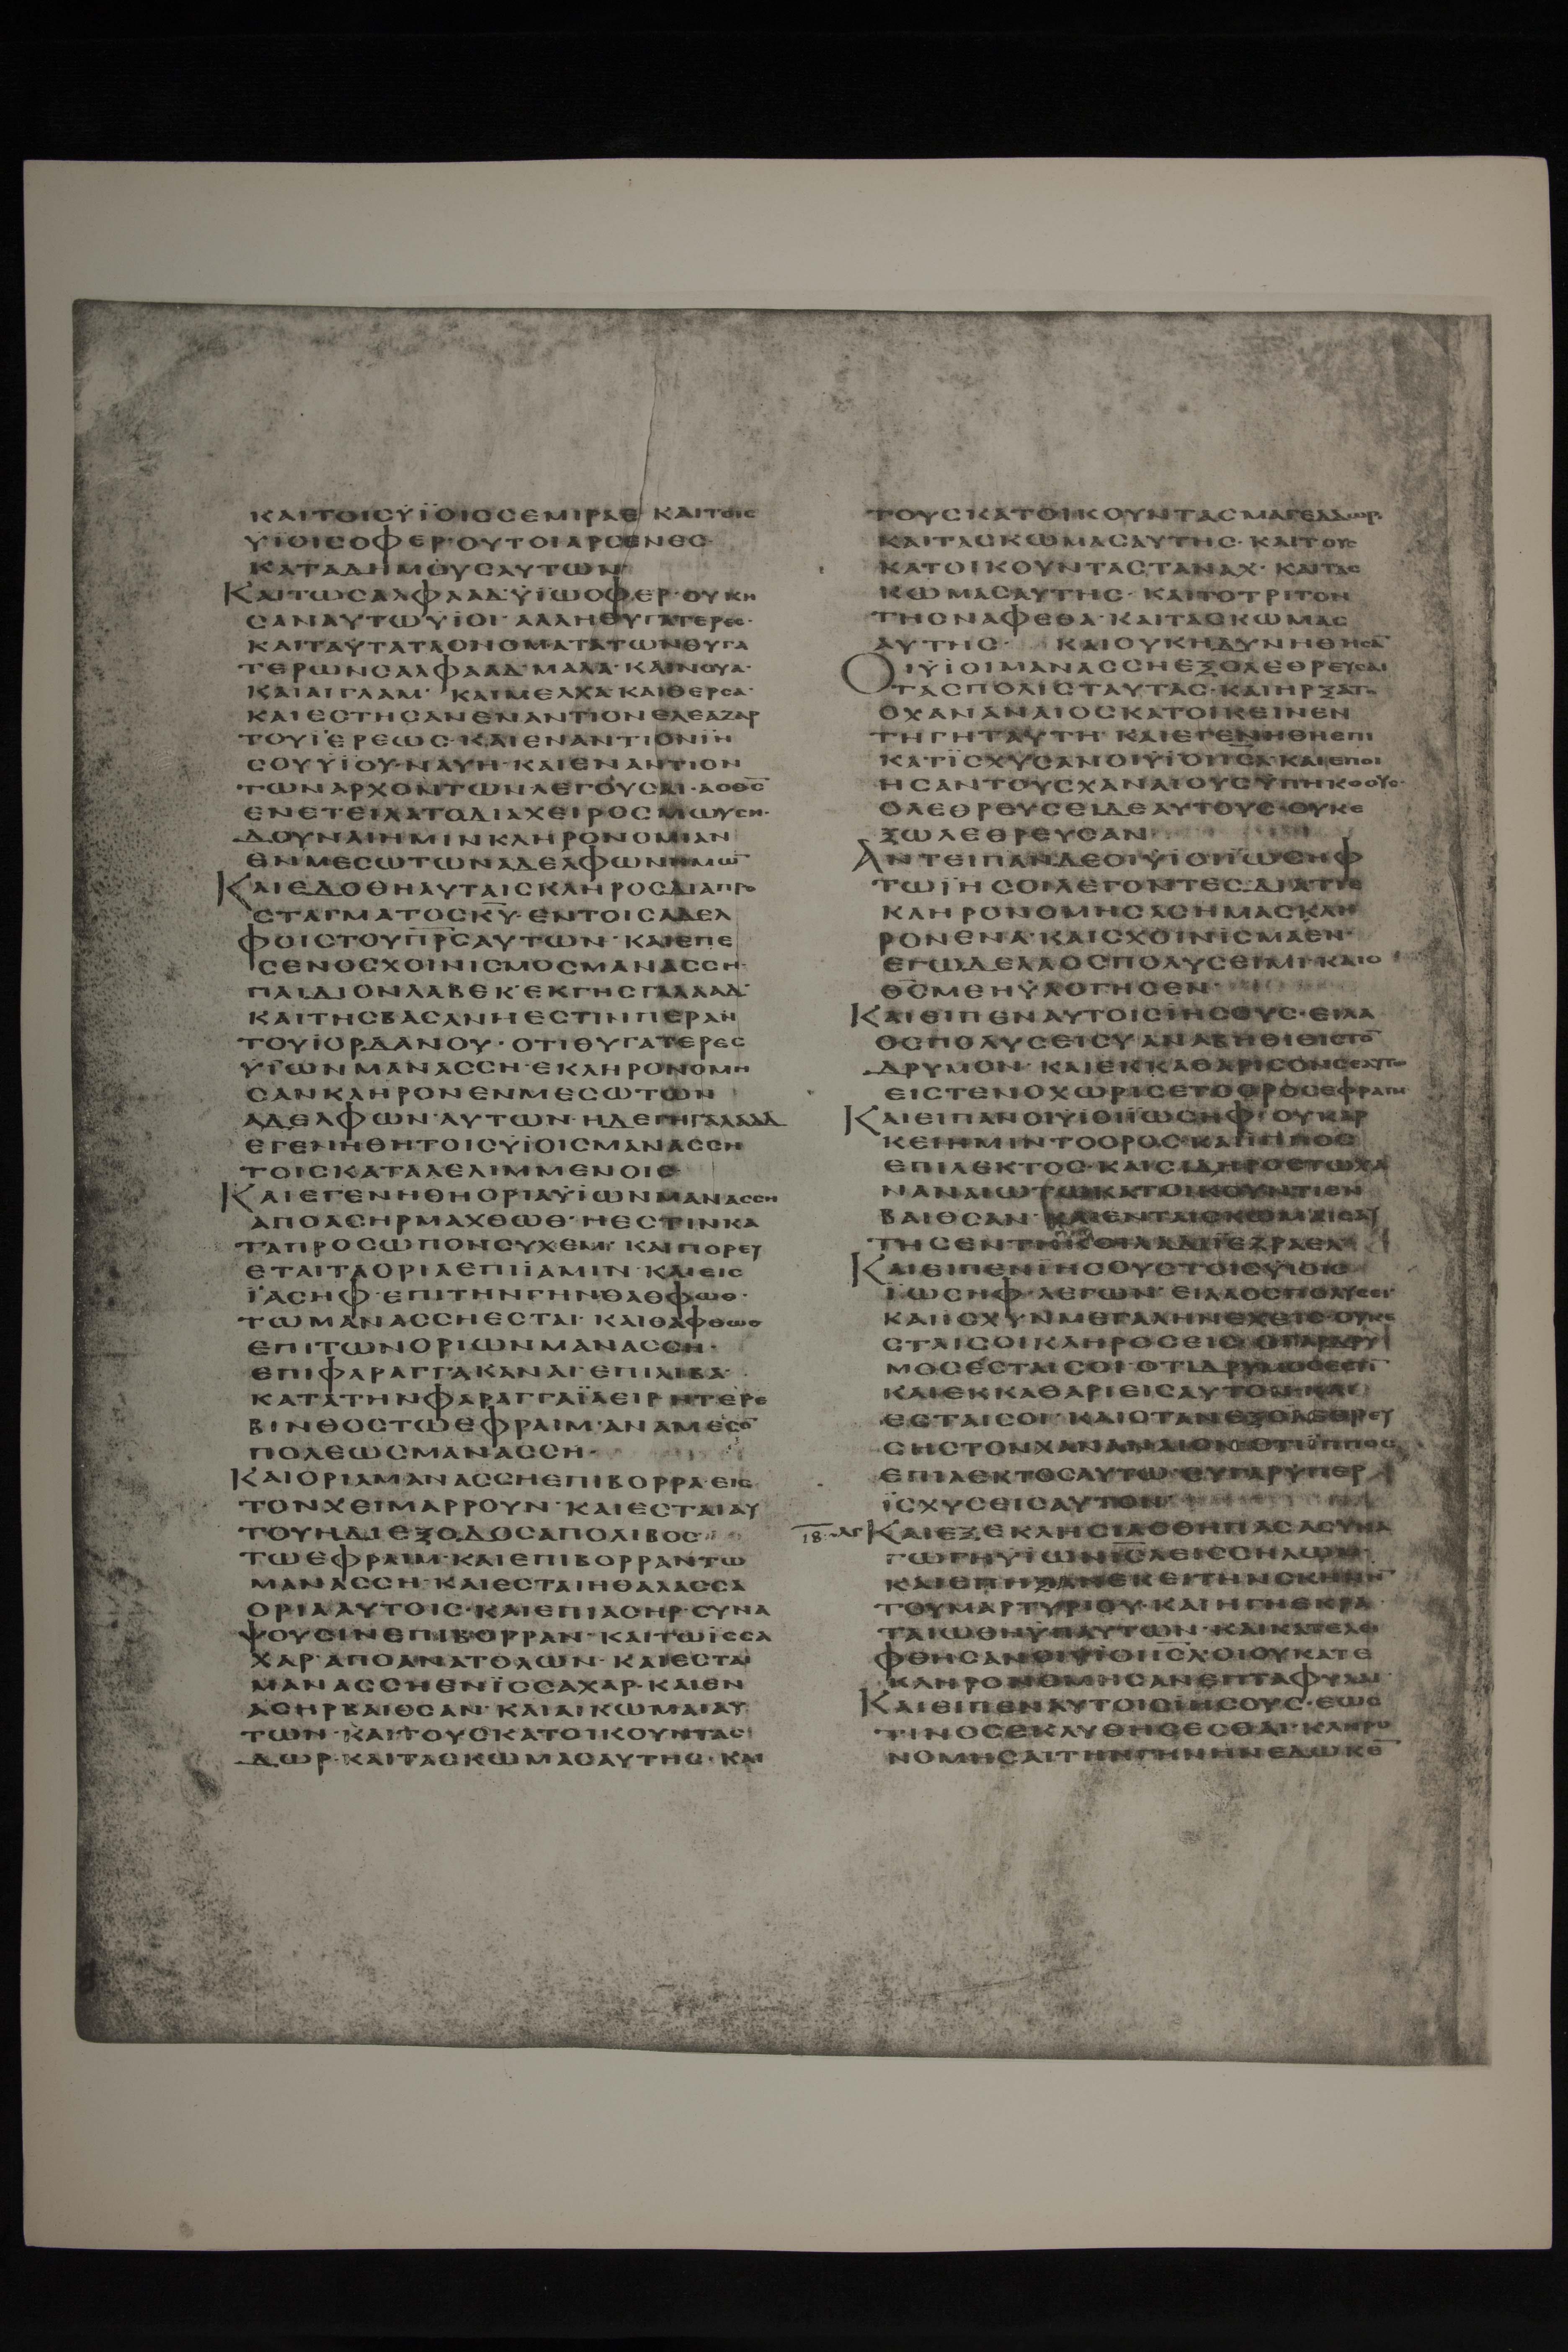 ΚΑΙΤΟΙСΥΪΟΙСϹΕΜΙΡΑΕ ΚΑΙΤΟΙϹ
ΥΪΟΙϹΟΦΕΡ·ΟΥΤΟΙΑΡϹΕΝΕϹ·
ΚΑΤΑΔΗΜΟΥϹΑΥΤΩΝ
ΚΑΙΤΩϹΑΛΦΑΑΔ·ΥΪΩΟΦΕΡ·ΟΥΚΗ
ϹΑΝΑΥΤΩΥΪΟΙ·ΑΛΛΗΘΥΓΑΤΕΡΕϹ·
ΚΑΙΤΑΥΤΑΤΑΟΝΟΜΑΤΑΤΩΝΘΥΓΑ
ΤΕΡΩΝϹΑΛΦΑΑΔ·ΜΑΛΑ·ΚΑΙΝΟΥΑ·
ΚΑΙΑΙΓΛΑΜ· ΚΑΙΜΕΛΧΑ·ΚΑΙΘΕΡϹΑ·
ΚΑΙΕϹΤΗϹΑΝΕΝΑΝΤΙΟΝΕΛΕΑΖΑΡ
ΤΟΥΪΕΡΕΩϹ·ΚΑΙΕΝΑΝΤΙΟΝΪΗ
ϹΟΥΥΪΟΥΝΑΥΗ·ΚΑΙΕΝΑΝΤΙΟΝ
ΤΩΝΑΡΧΟΝΤΩΝΛΕΓΟΥϹΑΙ·ΛΟΘ̅Ϲ̅
ΕΝΕΤΕΙΛΑΤΟΔΙΑΧΕΙΡΟϹΜΩΥϹΗ·
ΔΟΥΝΑΙΗΜΙΝΚΛΗΡΟΝΟΜΙΑΝ
ΕΝΜΕϹΩΤΩΝΑΔΕΛΦΩΝΗΜΩ̅
ΚΑΙΕΔΟΘΗΑΥΤΑΙϹΚΛΗΡΟϹΔΙΑΠΡΟ
ϹΤΑΓΜΑΤΟϹΚ̅Υ̅·ΕΝΤΟΙϹΑΔΕΛ
ΦΟΙϹΤΟΥΠ̅Ρ̅Ϲ̅ΑΥΤΩΝ· ΚΑΙΕΠΕ
ϹΕΝΟϹΧΟΙΝΙϹΜΟϹΜΑΝΑϹϹΗ·
ΠΑΙΔΙΟΝΛΑΒΕΚ·ΕΚΓΗϹΓΑΛΑΑΔ·
ΚΑΙΤΗϹΒΑϹΑΝΗΕϹΤΙΝΠΕΡΑΝ
ΤΟΥΪΟΡΔΑΝΟΥ·ΟΤΙΘΥΓΑΤΕΡΕϹ
ΥΪΩΝΜΑΝΑϹϹΗ·ΕΚΛΗΡΟΝΟΜΗ
ϹΑΝΚΛΗΡΟΝΕΝΜΕϹΩΤΩΝ
ΑΔΕΛΦΩΝ·ΑΥΤΩΝ·ΗΔΕΓΗΓΑΛΑΑΔ
ΕΓΕΝΗΘΗΤΟΙϹΥΪΟΙϹΜΑΝΑϹϹΗ
ΤΟΙϹΚΑΤΑΛΕΛΙΜΜΕΝΟΙϹ
ΚΑΙΕΓΕΝΗΘΗΟΡΙΑΥΪΩΝΜΑΝΑϹϹΗ
ΑΠΟΑϹΗΡΜΑΧΘΩΘ·ΗΕϹΤΙΝΚΑ
ΤΑΠΡΟϹΩΠΟΝϹΥΧΕΜ· ΚΑΙΠΟΡΕΥ
ΕΤΑΙΤΑΟΡΙΑΕΠΙΪΑΜΙΝ· ΚΑΙΕΙϹ
ΪΑϹΗΦ·ΕΠΙΤΗΝΓΗΝΘΑΘΦΩΘ·
ΤΩΜΑΝΑϹϹΗΕϹΤΑΙ· ΚΑΙΘΑΦΘΩΘ
ΕΠΙΤΩΝΟΡΙΩΝΜΑΝΑϹϹΗ·
ΕΠΙΦΑΡΑΓΓΑΚΑΝΑΙ·ΕΠΙΛΙΒΑ·
ΚΑΤΑΤΗΝΦΑΡΑΓΓΑΪΑΕΙΡ·ΗΤΕΡΕ
ΒΙΝΘΟϹΤΩΕΦΡΑΙΜ·ΑΝΑΜΕϹΟ̅
ΠΟΛΕΩϹΜΑΝΑϹϹΗ·
ΚΑΙΟΡΙΑΜΑΝΑϹϹΗΕΠΙΒΟΡΡΑ·ΕΙϹ
ΤΟΝΧΕΙΜΑΡΡΟΥΝ· ΚΑΙΕϹΤΑΙΑΥ
ΤΟΥΗΔΙΕΞΟΔΟϹΑΠΟΛΙΒΟϹ
ΤΩΕΦΡΑΙΜ·ΚΑΙΕΠΙΒΟΡΡΑΝΤΩ
ΜΑΝΑϹϹΗ·ΚΑΙΕϹΤΑΙΗΘΑΛΑϹϹΑ
ΟΡΙΑΑΥΤΟΙϹ·ΚΑΙΕΠΙΑϹΗΡ·ϹΥΝΑ
ΨΟΥϹΙΝΕΠΙΒΟΡΡΑΝ·ΚΑΙΤΩΪϹϹΑ
ΧΑΡ·ΑΠΟΑΝΑΤΟΛΩΝ· ΚΑΙΕϹΤΑΙ
ΜΑΝΑϹϹΗΕΝΪϹϹΑΧΑΡ·ΚΑΙΕΝ
ΑϹΗΡΒΑΙΘϹΑΝ·ΚΑΙΑΙΚΩΜΑΙΑΥ
ΤΩΝ·ΚΑΙΤΟΥϹΚΑΤΟΙΚΟΥΝΤΑϹ
ΔΩΡ·ΚΑΙΤΑϹΚΩΜΑϹΑΥΤΗϹ·ΚΑΙ
ΤΟΥϹΚΑΤΟΙΚΟΥΝΤΑϹΜΑΓΕΔΔΩΡ·
ΚΑΙΤΑϹΚΩΜΑϹΑΥΤΗϹ· ΚΑΙΤΟΥϹ
ΚΑΤΟΙΚΟΥΝΤΑϹΤΑΝΑΧ· ΚΑΙΤΑϹ
ΚΩΜΑϹΑΥΤΗϹ· ΚΑΙΤΟΤΡΙΤΟΝ
ΤΗϹΝΑΦΕΘΑ·ΚΑΙΤΑϹΚΩΜΑϹ
ΑΥΤΗϹ· ΚΑΙΟΥΚΗΔΥΝΗΘΗϹΑ̅
ΟΙΥΪΟΙΜΑΝΑϹϹΗΕΞΟΛΕΘΡΕΥϹΑΙ
ΤΑϹΠΟΛΙϹΤΑΥΤΑϹ·ΚΑΙΗΡΞΑΤΟ
ΟΧΑΝΑΝΑΙΟϹΚΑΤΟΙΚΕΙΝΕΝ
ΤΗΓΗΤΑΥΤΗ· ΚΑΙΕΓΕΝΗΘΗΕΠΙ
ΚΑΤΪϹΧΥϹΑΝΟΙΥΪΟΙΙ̅Ϲ̅Α·ΚΑΙΕΠΟΙ
ΗϹΑΝΤΟΥϹΧΑΝΑΙΟΥϹΫΠΗΚΟΟΥϹ·
ΟΛΕΘΡΕΥϹΕΙΔΕΑΥΤΟΥϹ·ΟΥΚΕ
ΞΩΛΕΘΡΕΥϹΑΝ
ΑΝΤΕΙΠΑΝΔΕΟΙΥΪΟΙΪΩϹΗΦ
ΤΩΪΗϹΟΙΛΕΓΟΝΤΕϹ·ΔΙΑΤΙΕ
ΚΛΗΡΟΝΟΜΗϹΑϹΗΜΑϹΚΛΗ
ΡΟΝΕΝΑ·ΚΑΙϹΧΟΙΝΙϹΜΑΕΝ·
ΕΓΩΔΕΛΑΟϹΠΟΛΥϹΕΙΜΙ·ΚΑΙΟ
Θ̅Ϲ̅ΜΕΗΥΛΟΓΗϹΕΝ·
ΚΑΙΕΙΠΕΝΑΥΤΟΙϹΪΗϹΟΥϹ·ΕΙΛΑ
ΟϹΠΟΛΥϹΕΙϹΥ·ΑΝΑΒΗΘΙΕΙϹΤΟ̅
ΔΡΥΜΟΝ· ΚΑΙΕΚΚΑΘΑΡΙϹΟΝϹΕΑΥΤΩ
ΕΙϹΤΕΝΟΧΩΡΙϹΕΤΟΟΡΟϹΕΦΡΑΙΜ
ΚΑΙΕΙΠΑΝΟΙΥΪΟΙΪΩϹΗΦ·ΟΥΚΑΡ
ΚΕΙΗΜΙΝΤΟΟΡΟϹ·ΚΑΙΪΠΠΟϹ
ΕΠΙΛΕΚΤΟϹ·ΚΑΙϹΙΔΗΡΟϹΤΩΧΑ
ΝΑΝΑΙΩΤΩΚΑΤΟΙΚΟΥΝΤΙΕΝ
ΒΑΙΘϹΑΝ·ΚΑΙΕΝΤΑΙϹΚΩΜΑΙϹΑΥ
ΤΗϹΕΝΤΗΚΟΙΛΑΔΙΪΕΖΡΑΕΛ
ΚΑΙΕΙΠΕΝΪΗϹΟΥϹΤΟΙϹΥΪΟΙϹ
ΪΩϹΗΦ·ΛΕΓΩΝ·ΕΙΛΑΟϹΠΟΛΥϹΕΙ·
ΚΑΙΪϹΧΥΝΜΕΓΑΛΗΝΕΧΕΙϹ·ΟΥΚΕ
ϹΤΑΙϹΟΙΚΛΗΡΟϹΕΙϹ·ΟΓΑΡΔΡΥ
ΜΟϹΕϹΤΑΙϹΟΙ·ΟΤΙΔΡΥΜΟϹΕϹΤΙ̅
ΚΑΙΕΚΚΑΘΑΡΙΕΙϹΑΥΤΟΝ·ΚΑΙ
ΕϹΤΑΙϹΟΙ· ΚΑΙΟΤΑΝΕΞΟΛΕΘΡΕΥ
ϹΗϹΤΟΝΧΑΝΑΝΑΙΟΝ·ΟΤΙΪΠΠΟϹ
ΕΠΙΛΕΚΤΟϹΑΥΤΩ·ϹΥΓΑΡΥΠΕΡ
ΪϹΧΥϹΕΙϹΑΥΤΟΝ·
18. ΚΑΙΕΞΕΚΛΗϹΙΑϹΘΗΠΑϹΑϹΥΝΑ
ΓΩΓΗΥΪΩΝΙ̅Ϲ̅Λ̅ΕΙϹϹΗΛΩΜ·
ΚΑΙΕΠΗΞΑΝΕΚΕΙΤΗΝϹΚΗΝΗ̅
ΤΟΥΜΑΡΤΥΡΙΟΥ·ΚΑΙΗΓΗΕΚΡΑ
ΤΑΙΩΘΗΥΠΑΥΤΩΝ·ΚΑΙΚΑΤΕΛΕΙ
ΦΘΗϹΑΝΟΙΥΪΟΙΙ̅Ϲ̅Λ̅ΟΙΟΥΚΑΤΕ
ΚΛΗΡΟΝΟΜΗϹΑΝΕΠΤΑΦΥΛΑΙ
ΚΑΙΕΙΠΕΝΑΥΤΟΙϹΪΗϹΟΥϹ·ΕΩϹ
ΤΙΝΟϹΕΚΛΥΘΗϹΕϹΘΑΙ·ΚΛΗΡΟ
ΝΟΜΗϹΑΙΤΗΝΓΗΝΗΝΕΔΩΚΕ̅